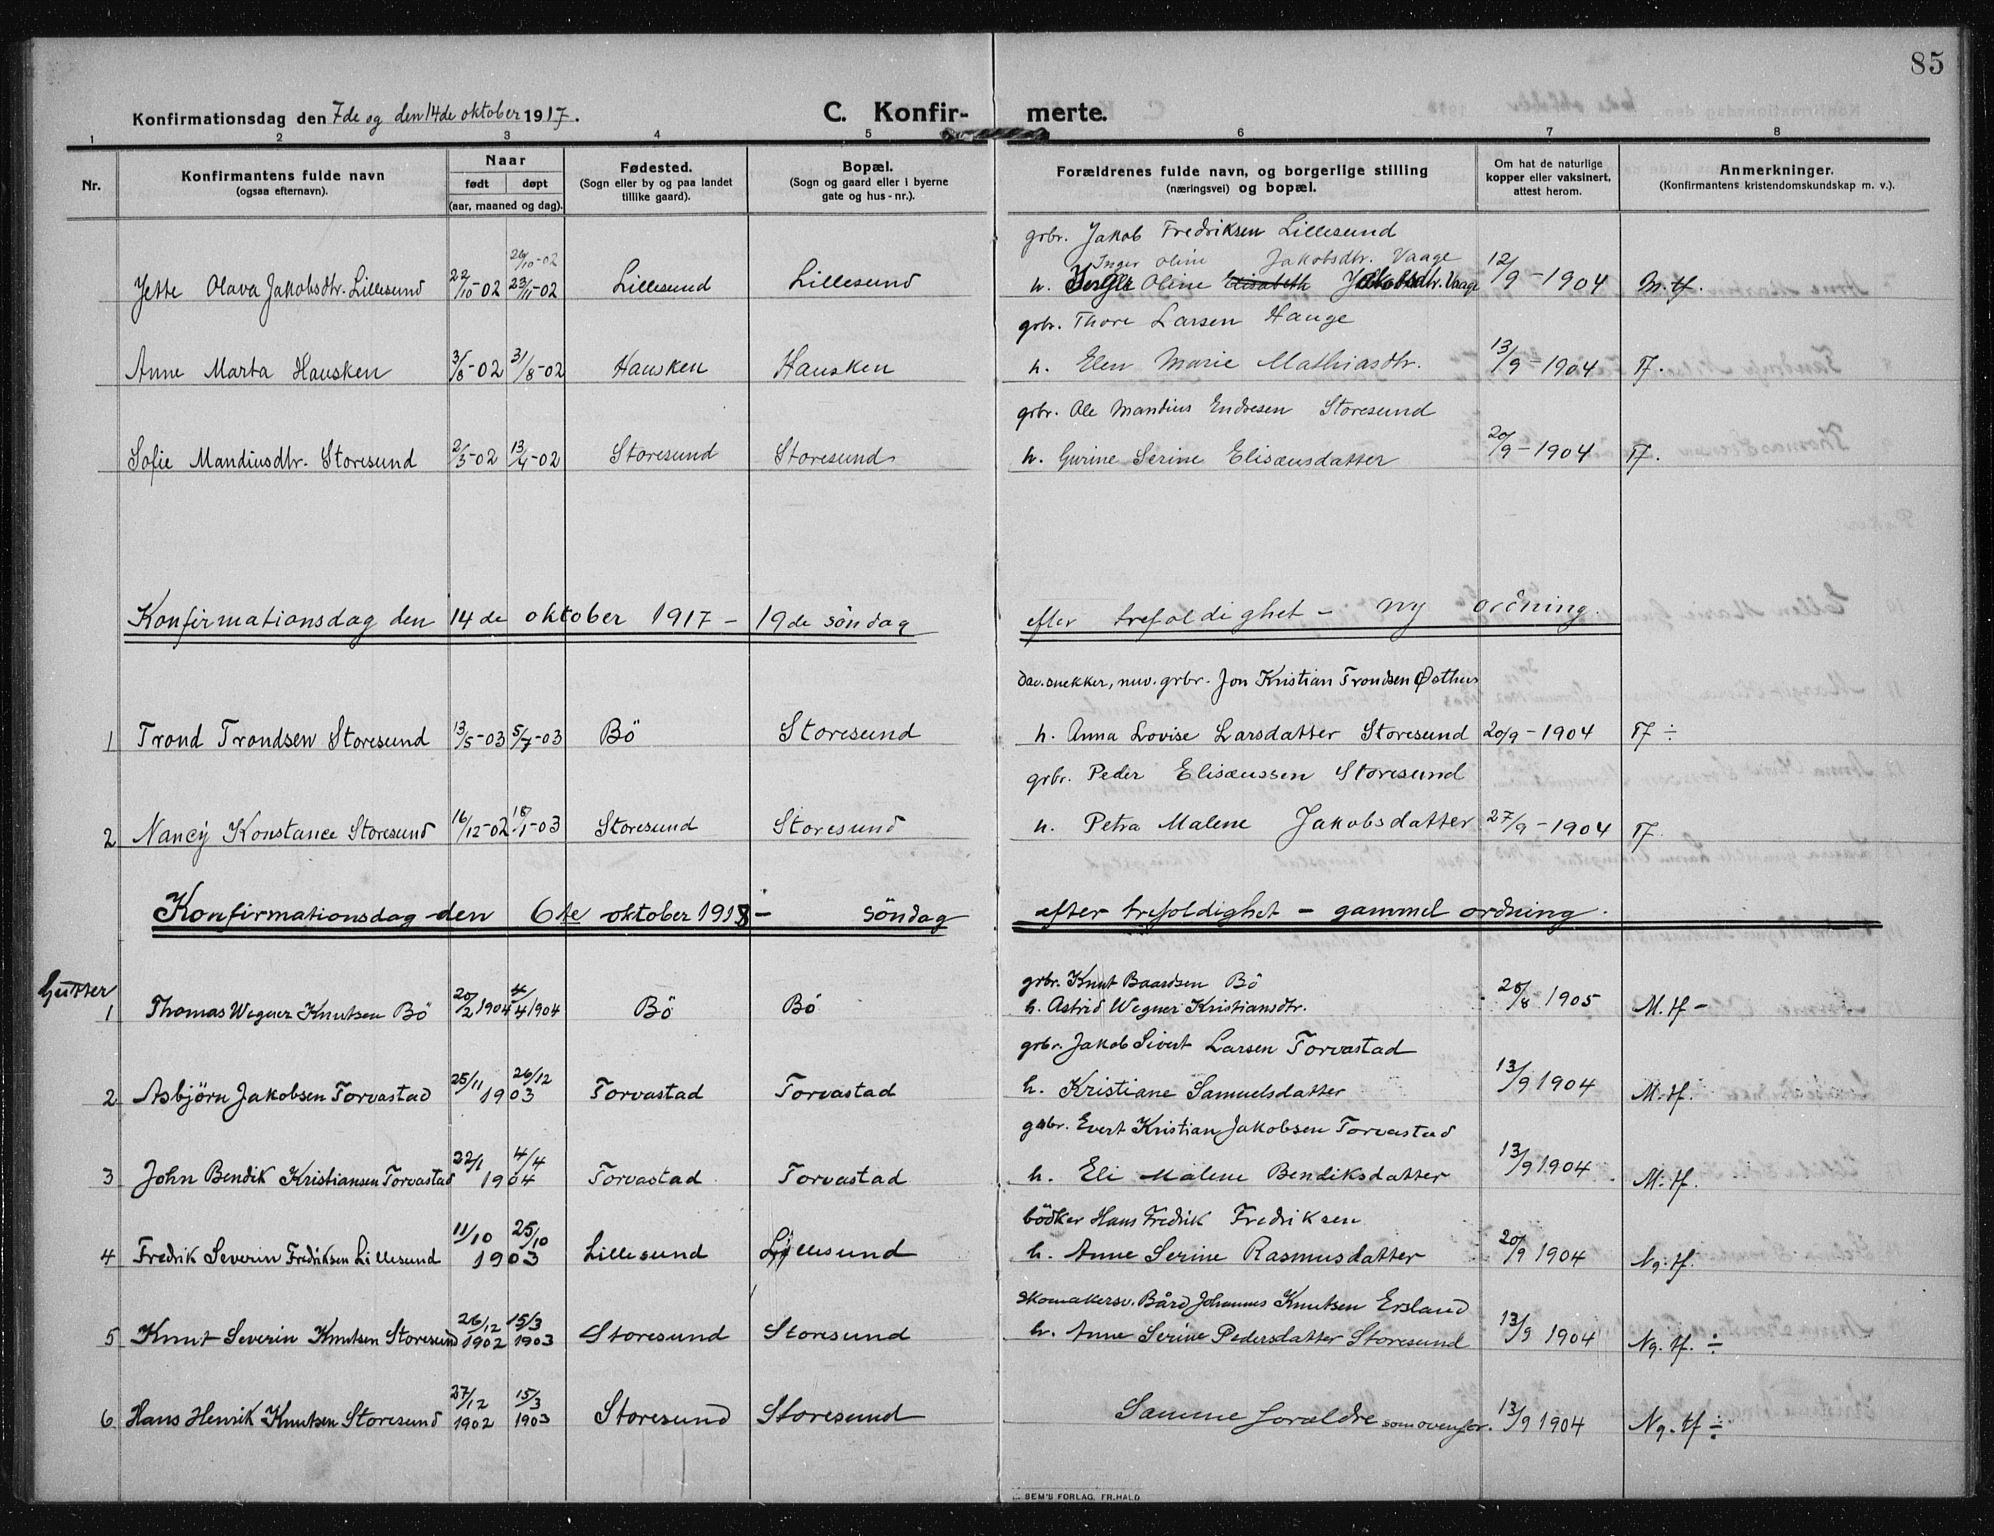 85
Konfirmationsdag den 7de og den 14de oktober 1917. C. Konfir- merte.
1 2 3 4 5 6 7 8
Nr. Konfirmantens fulde navn (ogsaa efternavn). Naar født døpt (aar, maaned og dag). Fødested. (Sogn eller by og paa landet tillike gaard). Bopæl. (Sogn og gaard eller i byerne gate og hus-nr.). Forældrenes fulde navn, og borgerlige stilling (næringsvei) og bopæl. Om hat de naturlige kopper eller vaksinert, attest herom. Anmerkninger. (Konfirmantens kristendomskundskap m. v.).
grbr. Jakob Fredriksen Lillesund
26/10-02 Inger Oline Jakobsdtr. Vaage
Jette Olava Jakobsdtr. Lillesund 22/10-02 23/11-02 Lillesund Lillesund h. Oline Elisabeth Jakobsdtr. Vaage 12/9-1904 M. tf.
grbr. Thore Larsen Hauge
Anne Marta Hausken 3/8-02 31/8-02 Hausken Hausken h. Elen Marie Mathiasdtr. 13/9-1904 Tf.
grbr. Ole Mandius Endresen Storesund
Sofie Mandiusdtr. Storesund 2/3-02 13/4-02 Storesund Storesund h. Gurine Serine Elisæusdatter 20/9-1904 Tf.
Konfirmationsdag den 14de oktober 1917 - 19de söndag efter trefoldighet - ny ordning.
dav. snekker, nuv. grbr. Jon Kristian Trondsen Østhus
1 Trond Trondsen Storesund 13/5-03 5/7-03 Bö Storesund h. Anna Lovise Larsdatter Storesund 20/9-1904 Tf ÷
grbr. Peder Elisæussen Storesund
2 Nancy Konstance Storesund 16/12-02 18/1-03 Storesund Storesund h. Petra Malene Jakobsdatter 27/9-1904 Tf.
Konfirmationsdag den 6te oktober 1918 - söndag efter trefoldighet - gammel ordning.
Gutter grbr. Knut Baardsen Bö
1 Thomas Wegner Knutsen Bö 20/2 1904 4/4 1904 Bö Bö h. Astrid Wegner Kristiansdtr. 28/8 1905 M. tf -
grbr. Jakob Sivert Larsen Torvastad
2 Asbjörn Jakobsen Torvastad 25/11 26/12 1903 Torvastad Torvastad h. Kristiane Samuelsdatter 13/9 1904 M. tf.
gbr. Evert Kristian Jakobsen Torvastad
3 John Bendik Kristiansen Torvastad 22/1 4/4 1904 Torvastad Torvastad h. Eli Malene Bendiksdatter 13/9 1904 M. tf.
bödker Hans Fredrik Fredriksen
4 Fredrik Severin Fredriksen Lillesund 11/10 25/10 1903 Lillesund Lillesund h. Anne Serine Rasmusdatter 20/9 1904 Ng. tf.
skomakersv. Bård Johannes Knutsen Ersland
5 Knut Severin Knutsen Storesund 26/12 1902 15/3 1903 Storesund Storesund h. Anne Serine Pedersdatter Storesund 13/9 1904 Ng. tf. ÷
6 Hans Henrik Knutsen Storesund 27/12 1902 15/3 1903 Storesund Storesund Samme forældre som ovenfor. 13/9 1904 Ng. tf ÷
SEM'S FORLAG, FR.HALD